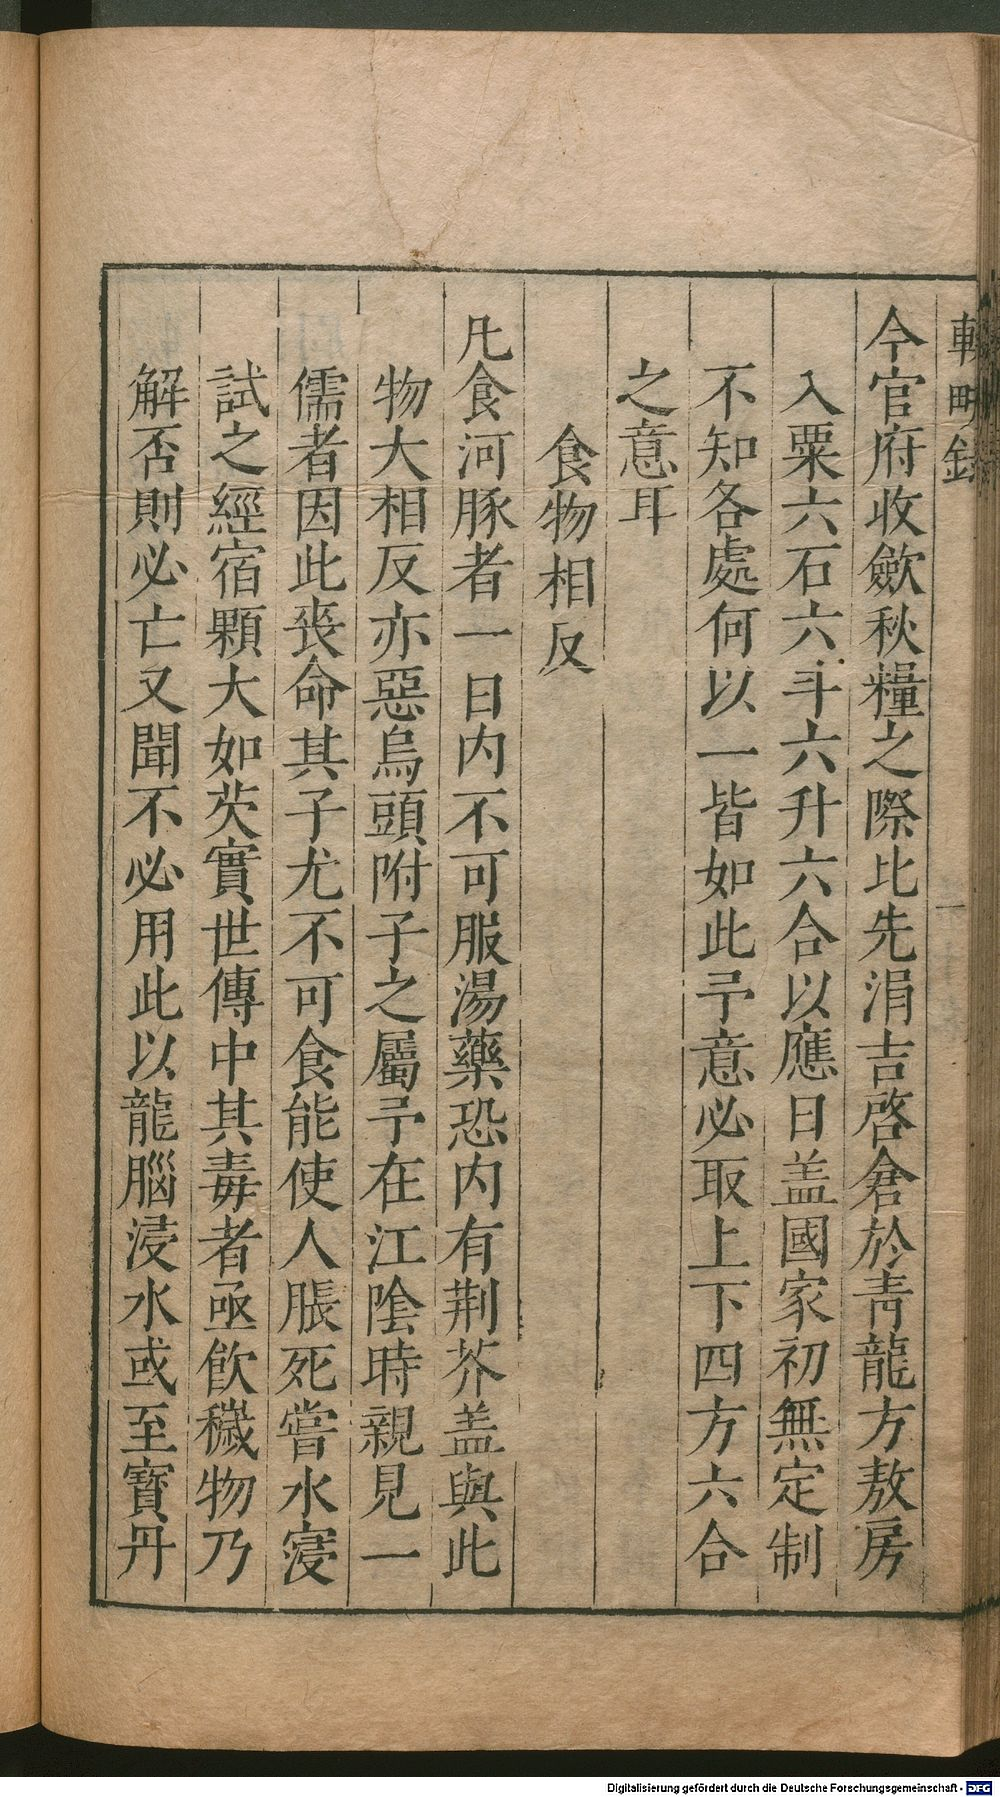 輟畊錄
今官府收斂秋糧之際比先涓吉啓倉於靑龍方敖房
入粟六石六斗六升六合以應日盖國家初無定制
不知各處何以一皆如此予意必取上下四方六合
之意耳
食物相反
凡食河豚者一日内不可服湯藥恐内有荆芥盖與此
物大相反亦惡烏頭附子之屬予在江陰時親見一
儒者因此喪命其子尤不可食能使人脹死嘗水寖
試之經宿顆大如芡實世傳中其毒者亟飲穢物乃
解否則必亡又聞不必用此以龍腦浸水或至寶丹
Digitalisierung gefördert durch die Deutsche Forschungsgemeinschaft - DFG